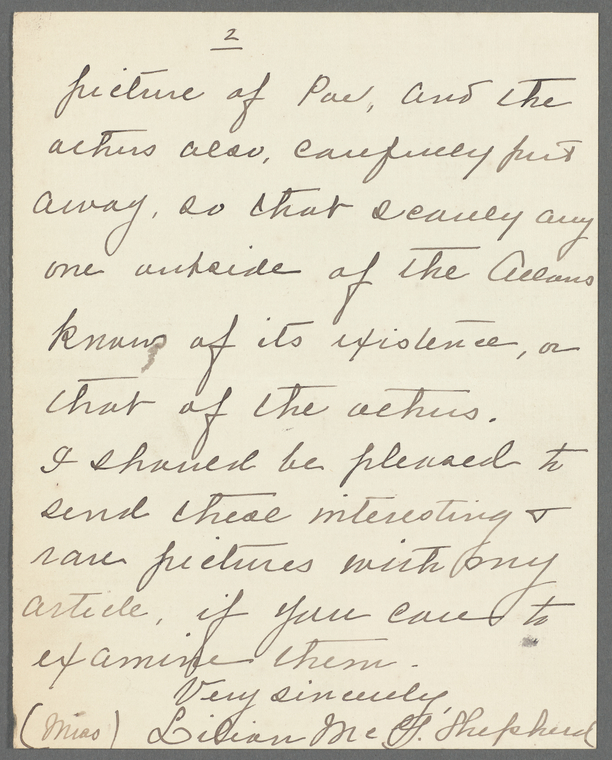 2
picture of Poe, and the
others also, carefully put
away, so that scarcely any
one outside of the Allans
knows of its existence, or
that of the others.
I should be pleased to
send these interesting &
rare pictures with my
article, if you care to
examine them.
Very sincerely,
(Miss) Lilian Mc. G. Shepherd